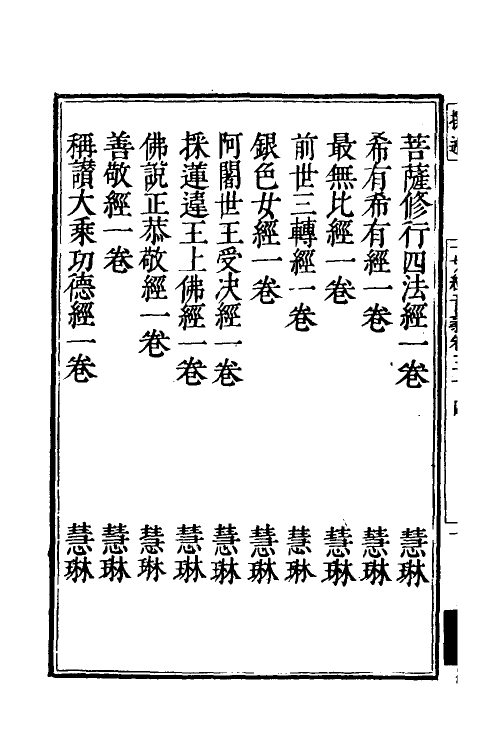 菩薩修行四法經一卷 慧琳
希有希有經一卷 慧琳
最無比經一卷 慧琳
前世三轉經一卷 慧琳
銀色女經一卷 慧琳
阿闍世王受决經一卷 慧琳
採蓮違王上佛經一卷 慧琳
佛說正恭敬經一卷 慧琳
善敬經一卷 慧琳
稱讃大乘功德經一卷 慧琳